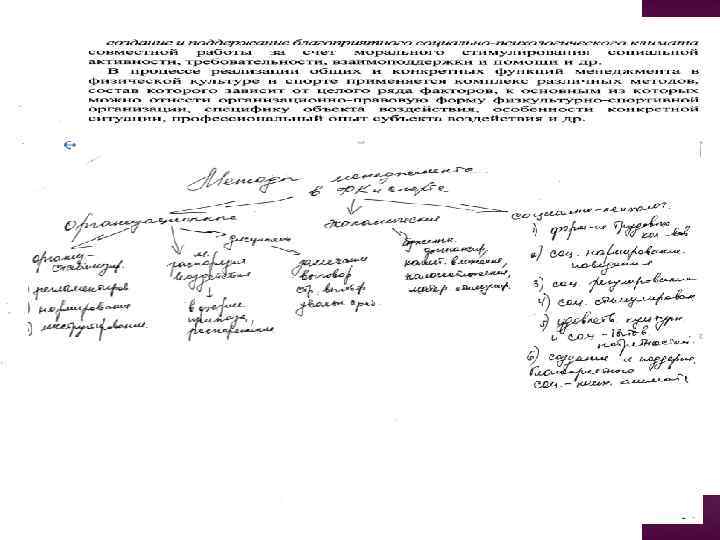 создание и поддержание благоприятного социально-психологического климата
совместной работы за счет морального стимулирования социальной
активности, требовательности, взаимоподдержки и помощи и др.
В процессе реализации общих и конкретных функций менеджмента в
физической культуре и спорте применяется комплекс различных методов,
состав которого зависит от целого ряда факторов, к основным из которых
можно отнести организационно-правовую форму физкультурно-спортивной
организации, специфику объекта воздействия, особенности конкретной
ситуации, профессиональный опыт субъекта воздействия и др.
Методы менеджмента
в ФК и спорте
Организационные
экономические
социально-психолог.
дисциплин
организ-
стабилизир.
регламентиров
нормирование
инструктирование.
м.
распоряд
воздействия
в форме
приказа,
распоряжение
замечание
выговор
стр. выговор
увольн
бюджетн.
финансир,
капит. вложения,
налогообложение,
матер стимулир.
1) форм-ие трудовых
2) соц. нормирование
поведения
3) соц регулирование
4) соц. стимулирован
5) удовлеть культурн
и соц-бытов
потребностей.
6) создание и поддерж.
благоприятного
соц.-псих. климат